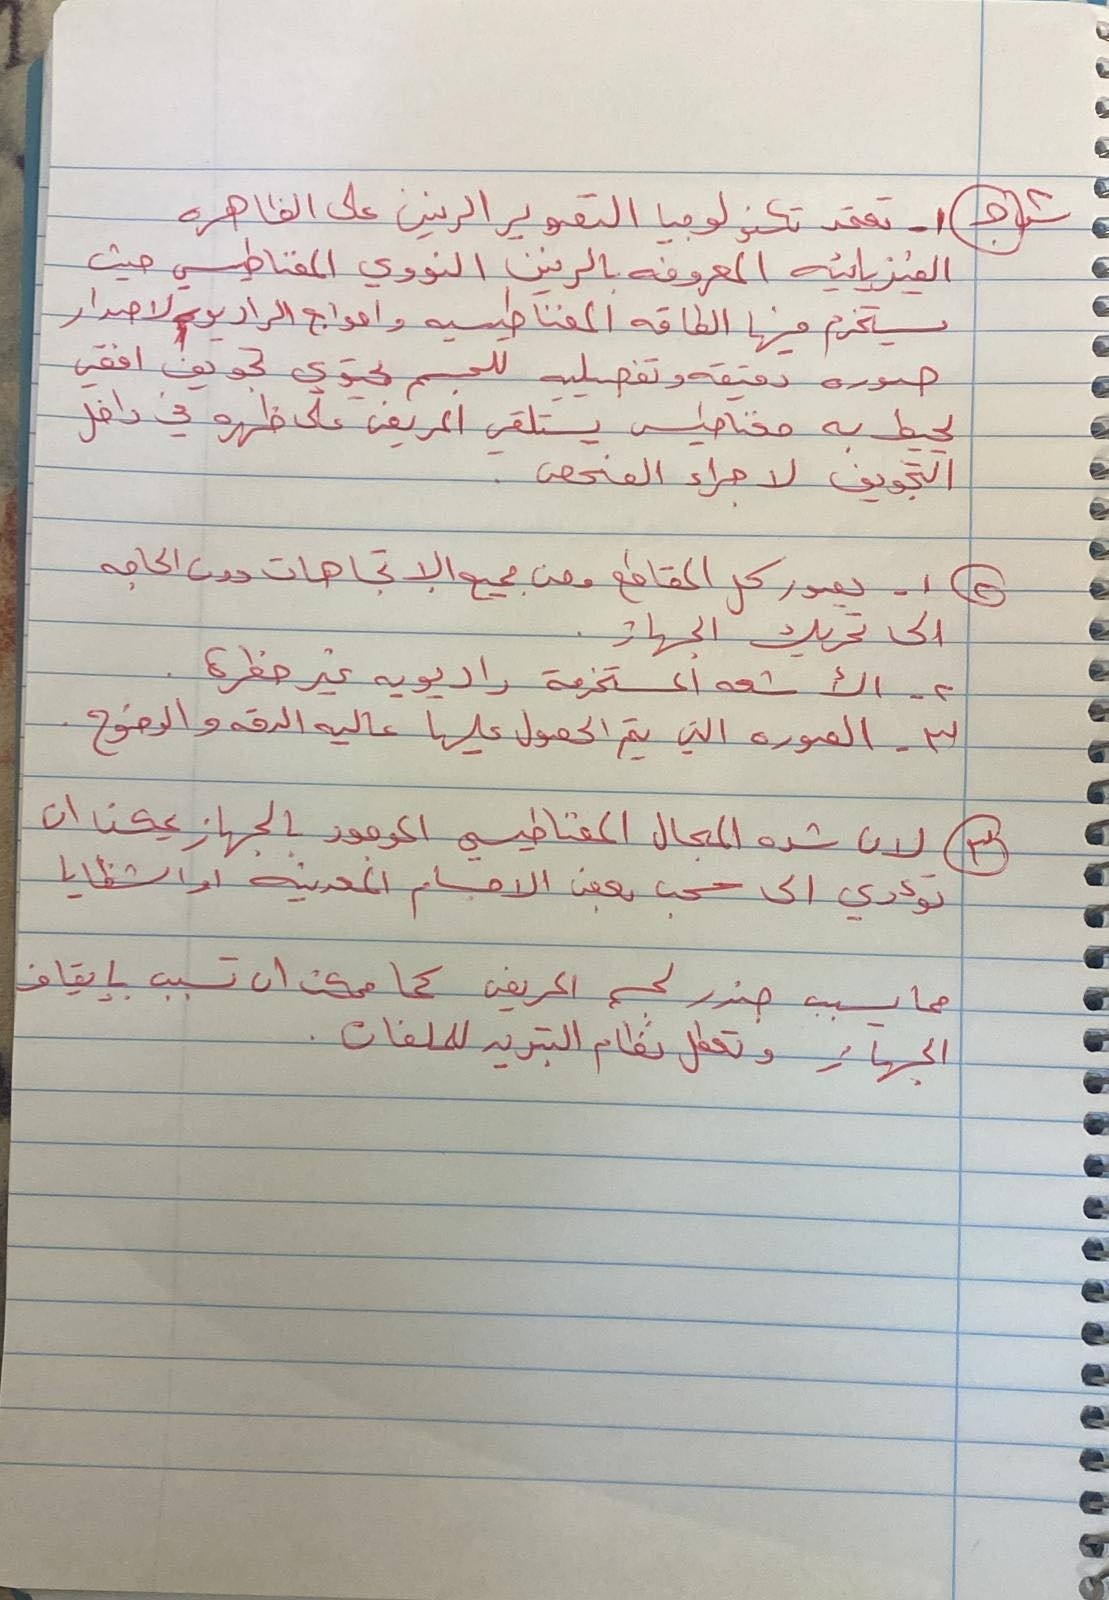 ش ج ١- تعقد تكنولوجيا التقوير الرنين على الظاهره
الفيزيائيه المعروفه بالرنين النووي المقناطيسي حيث
يستخدم فيها الطاقه المقناطيسيه وامواج الراديو لاصدار
صوره دقيقه وتفصيليه للجسم يحتوي تجويف افقي
يحيط به مغناطيس يستلقي المريض على ظهره في داخل
التجويف لاجراء الفحص .
١- يصور كل المقاطع ومن جميع الاتجاهات دون الحاجه
الى تحريك الجهاز .
٢- الأشعه المستخدمة راديويه غير خطرة .
٣- الصوره التي يتم الحصول عليها عاليه الدقه والوضوح .
٣ لان شده المجال المقناطيسي الموجود بالجهاز يمكن ان
تؤدي الى سحب بعض الاجسام المعدنيه او الشظايا
مما يسبب ضرر لجسم المريض كما ممكن ان تسبب بإيقاف
الجهاز وتعطل نظام التبريد للملفات .